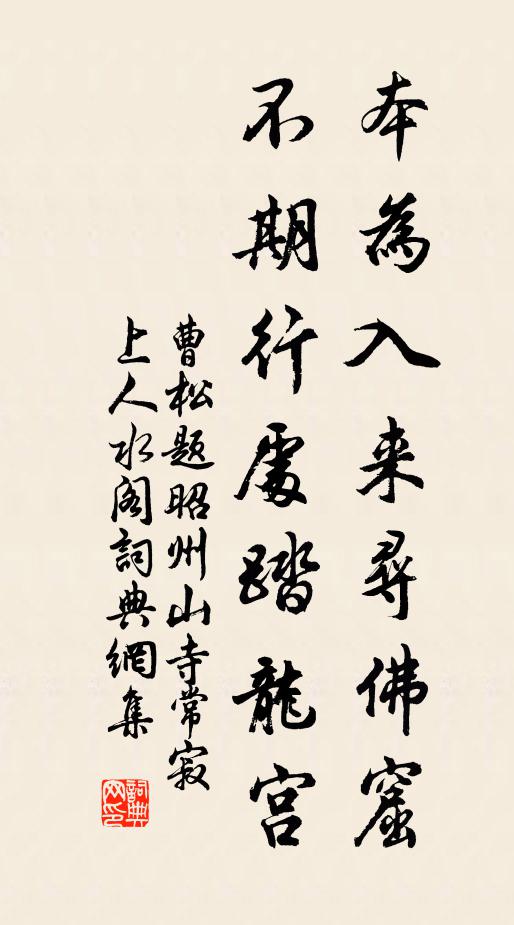 本為入来尋佛窟
不期行處踏龍宮
曹松題昭州山寺常寂
上人水閣詞典網集
詞典网印